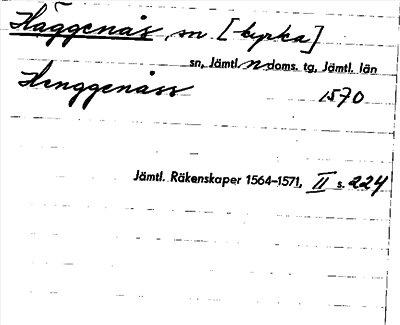 Häggenås, sn [kyrka]
sn, Jämtl. n doms. tg, Jämtl. län
Henggenåss 1570
Jämtl. Räkenskaper 1564-1571, II s. 224